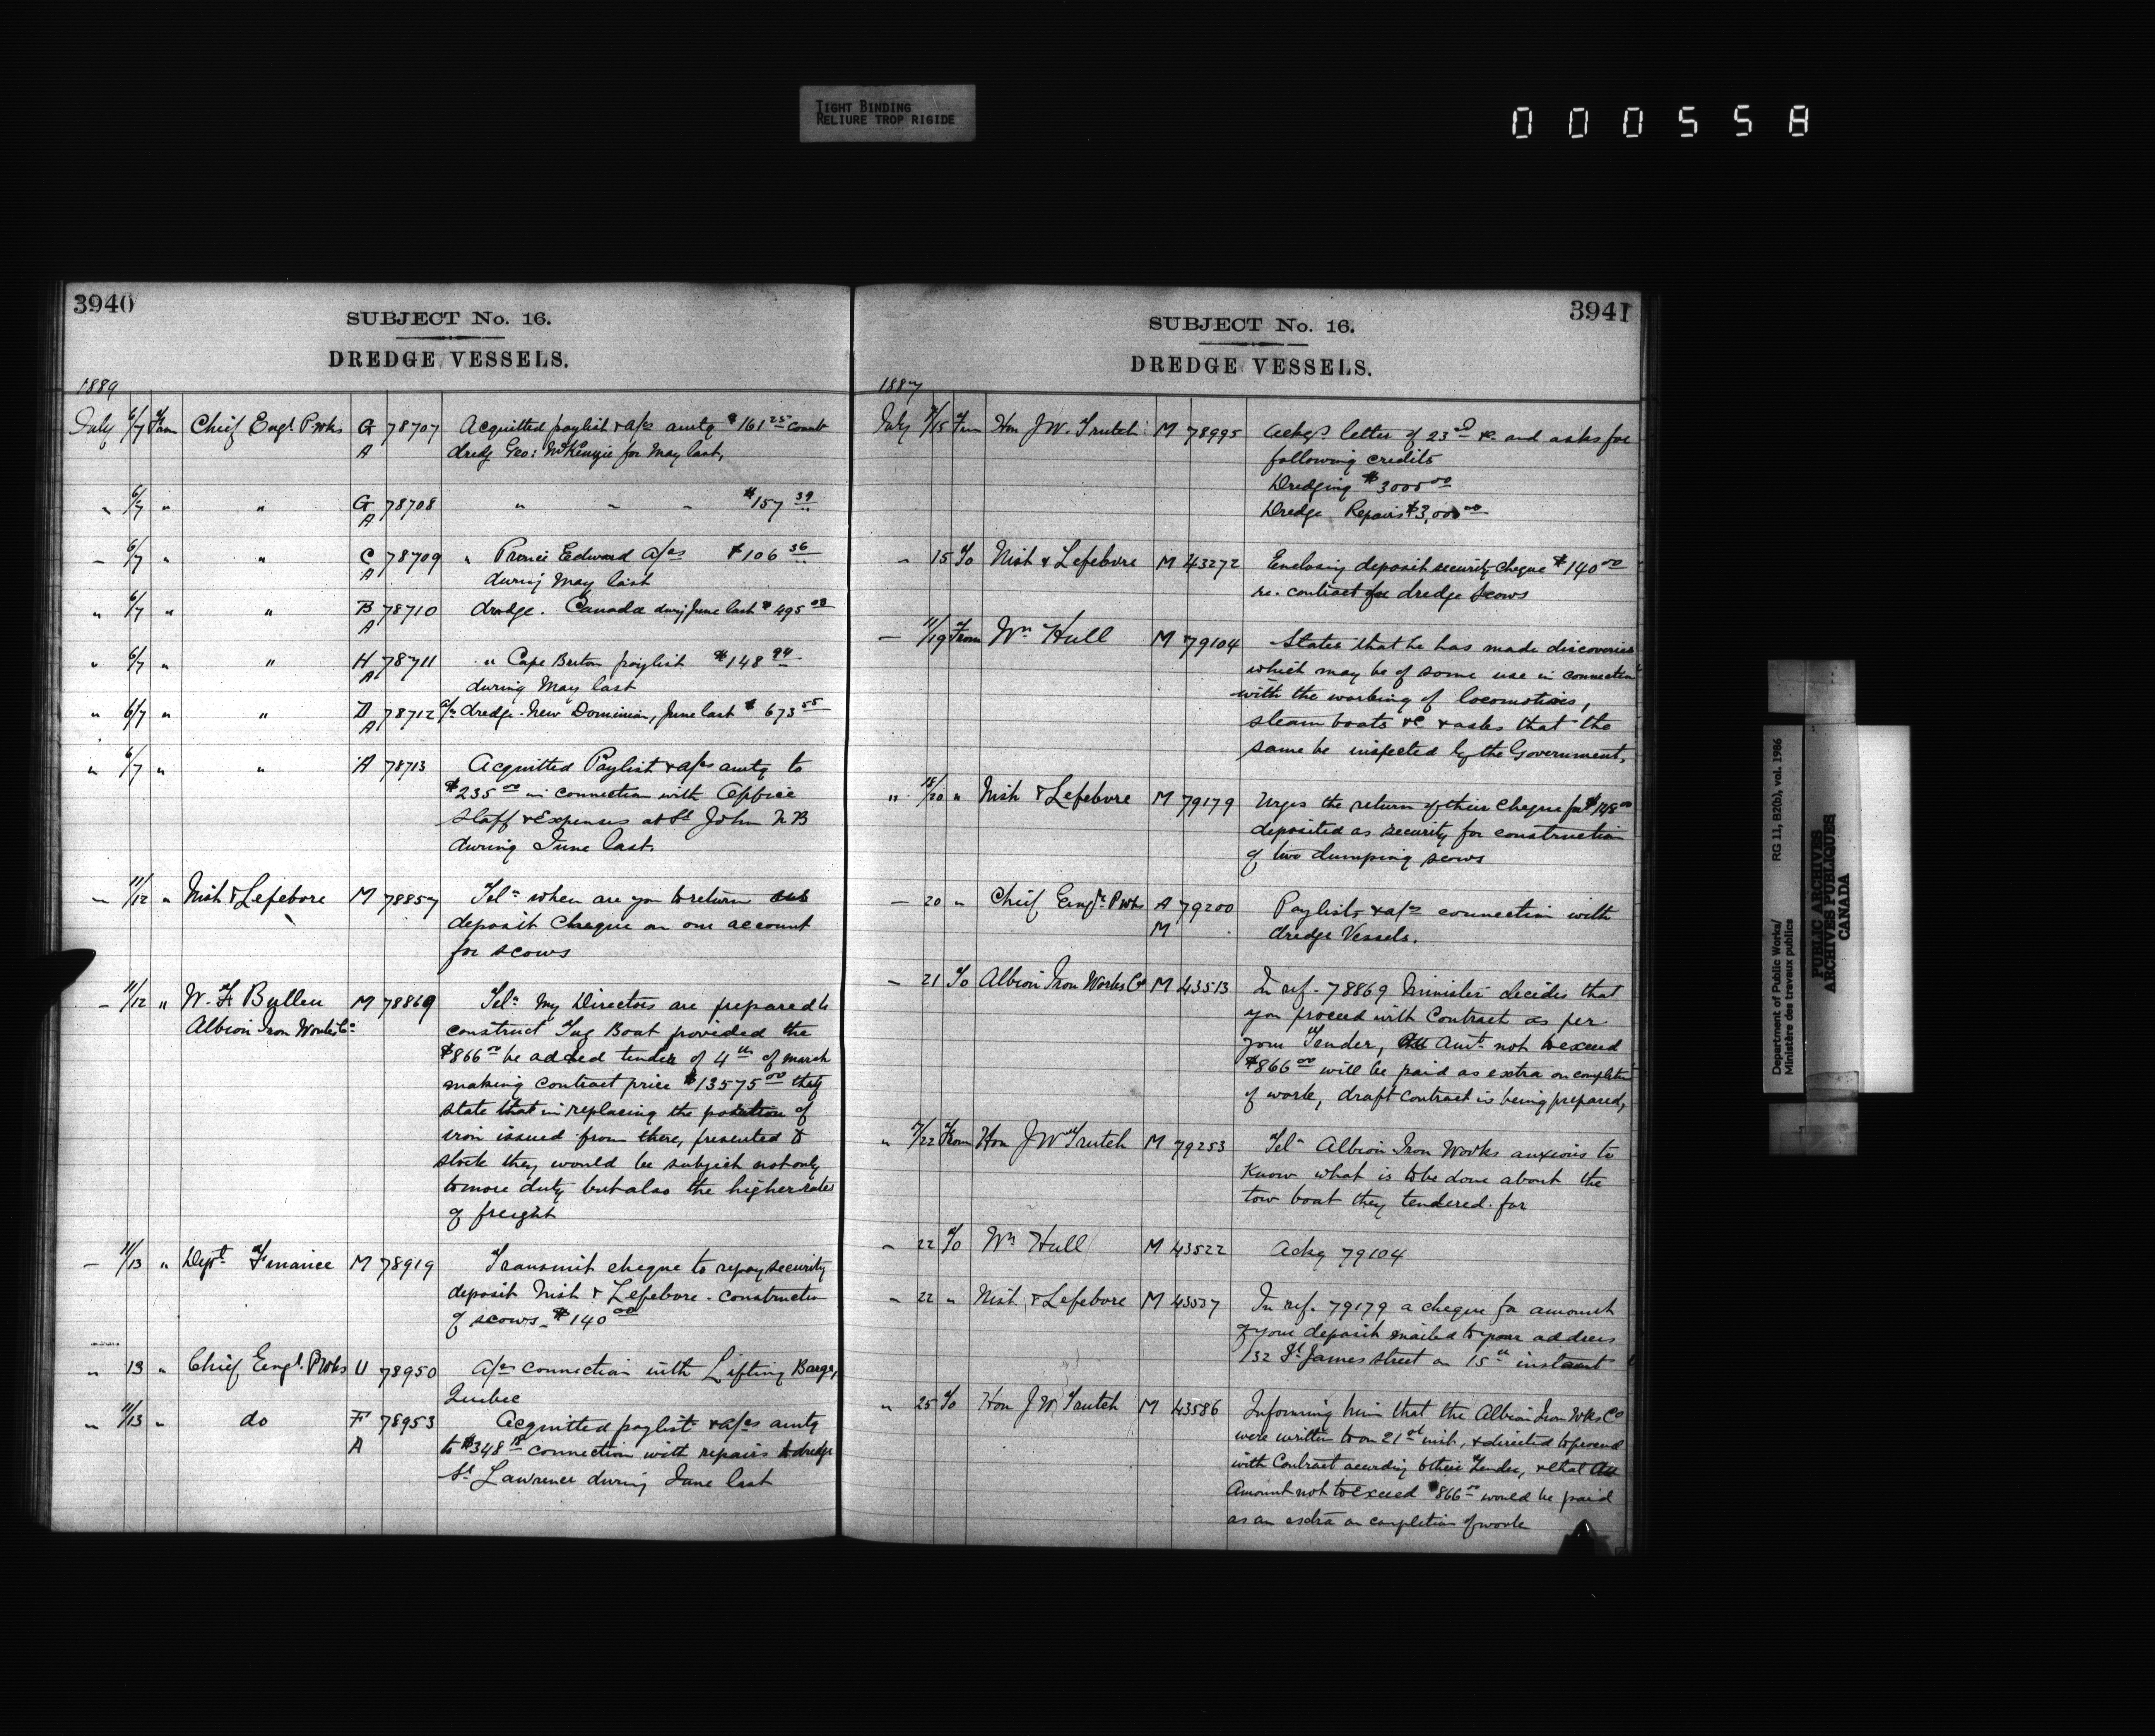 TIGHT BINDING
RELIURE TROP RIGIDE
000558
3940
SUBJECT No. 16.
DREDGE VESSELS.
1889
July 6/7 From Chief Engr. P. Wks G A 78707 Acquitted paylist & a/cs amtg $161 25
dredg Geo: McKenzie for May last,
" 6/7 " " G A 78708 " " " $157 39
– 6/7 " " C A 78709 " Prince Edward a/cs $106 36
during May last
" 6/7 " " B A 78710 dredge. Canada during June last $495
" 6/7 " " H A 78711 " Cape Breton paylist $148 94
during May last
" 6/7 " " D A 78712 a/cs dredge New Dominion, June last $673 55
" 6/7 " " A 78713 Acquitted Paylist & a/cs amtg to
$235 00 in connection with Office
Staff & Expenses at St John N B
during June last.
– 11/12 " Nish & Lefebvre M 78857 Teln when are you to return
deposit cheque on our account
for scows
– 11/12 " W. F. Bullen M 78869 Teln My Directors are prepared to
Albion Iron Works Co
construct Tug Boat provided the
$866 00 be added tender of 4th of march
making contract price $13575 00 they
state that in replacing the portion of
iron issued from there, presented &
stock they would be subject not only
to more duty but also the higher rates
of freight
– 11/13 " Dept Finance M 78919 Transmit cheque to repay security
deposit Nish & Lefebvre - construction
of scows. $140 00
" 13 " Chief Engr. P Wks U 78950 a/cs connection with Lifting Barge,
Quebec
" 11/13 " do F A 78953 Acquitted paylist & a/cs amtg
to $348 connection with repairs to dredge
St Lawrence during June last
3941
SUBJECT No. 16.
DREDGE VESSELS.
1889
July 9/15 From Hon J. W. Trutch M 78995 Ackgs letter of 23rd &c and asks for
following credits
Dredging $3000 00
Dredge Repairs $3,000 00
– 15 To Nish & Lefebvre M 43272 Enclosing deposit security cheque $140 00
re. contract for dredge scows
– 11/19 From Wm Hull M 79104 States that he has made discoveries
which may be of some use in connection
with the working of locomotives,
steam boats &c & asks that the
same be inspected by the Government,
" 18/20 " Nish & Lefebvre M 79179 Urges the return of their cheque for
deposited as security for construction
of two dumping scows
– 20 " Chief Engr. P Wks A M 79200 Paylists & a/cs connection with
dredge Vessels.
– 21 To Albion Iron Works Co M 43513 In ref. 78869 Minister decides that
you proceed with Contract as per
your Tender, Amt not to exceed
$866 00 will be paid as extra on completion
of work, draft contract is being prepared,
" 9/22 From Hon J W Trutch M 79253 Teln Albion Iron Works anxious to
Know what is to be done about the
tow boat they tendered for
– 22 To Wm Hull M 43522 Ackg 79104
– 22 " Nish & Lefebvre M 43537 In ref. 79179 a cheque for amount
of your deposit mailed to your address
132 St James street on 15th instant
" 25 To Hon J W Trutch M 43586 Informing him that the Albion Iron Wks Co
were written to on 21st inst, & directed to proceed
with Contract according to their Tender, & that
Amount not to exceed $866 00 would be paid
as an extra on completion of work
Department of Public Works/
RG 11, B2(b), vol. 1986
Ministère des travaux publics
PUBLIC ARCHIVES
ARCHIVES PUBLIQUES
CANADA